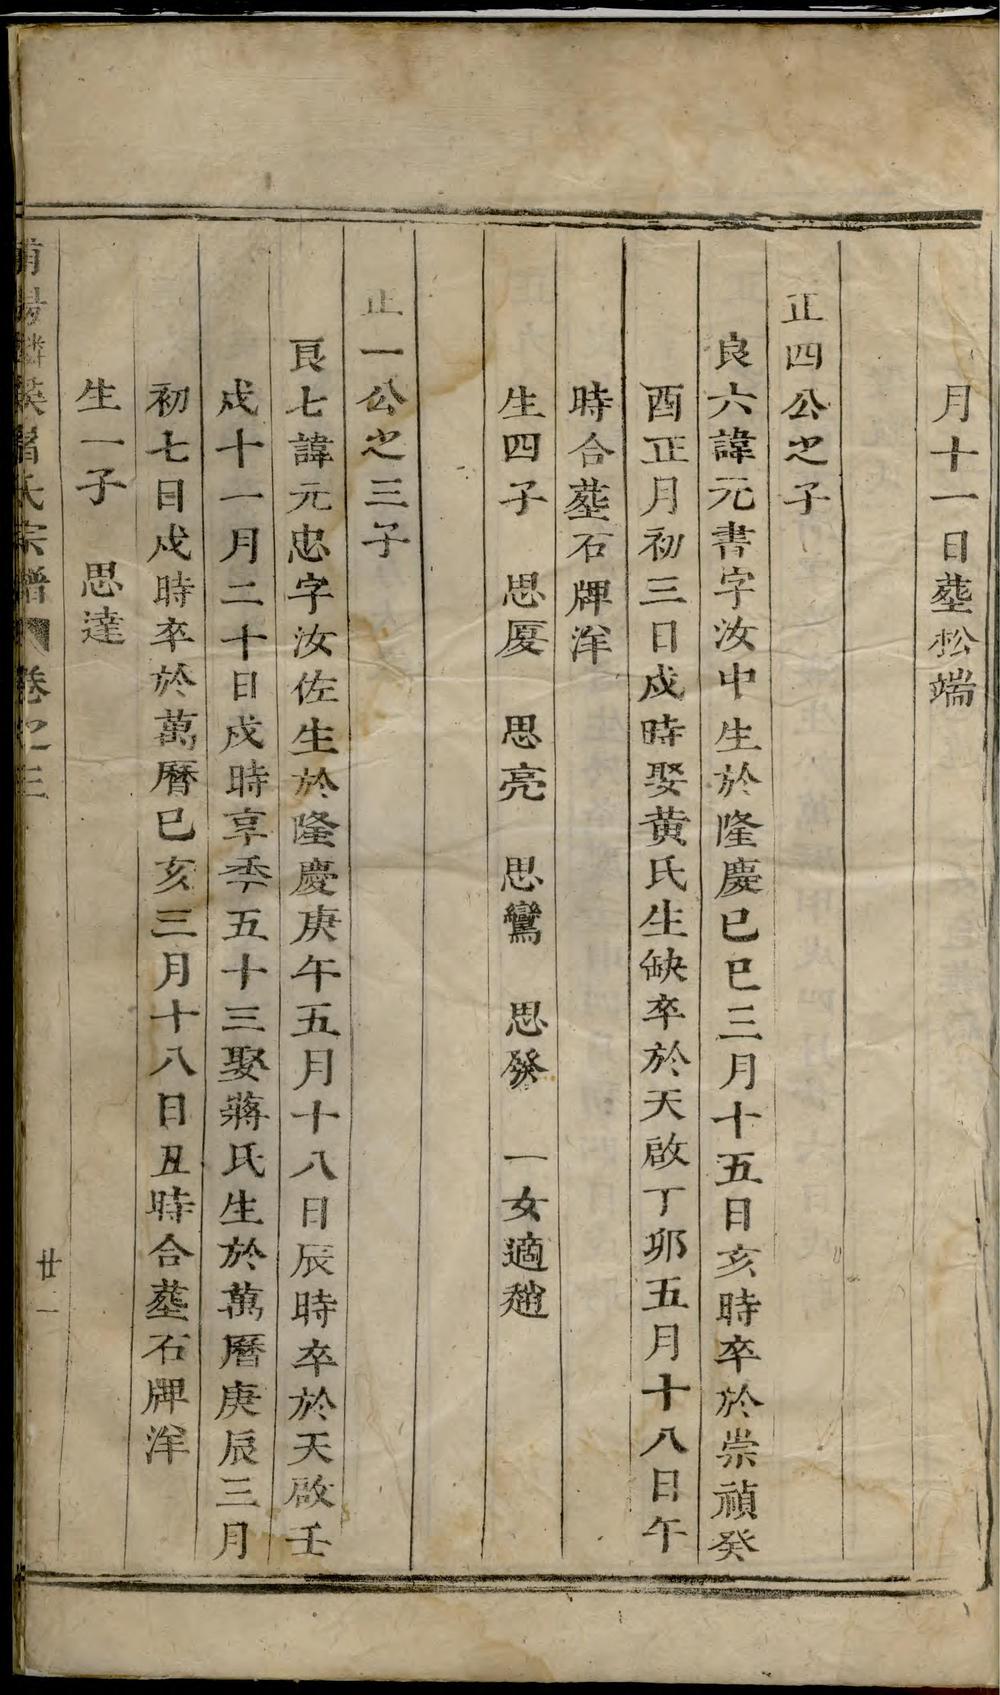 月十一日塟松端
正四公之子
良六諱元書字汝中生於隆慶己巳三月十五日亥時卒於崇禎癸
酉正月初三日戌時娶黃氏生缺卒於天啟丁卯五月十八日午
時合塟石牌洋
生四子 思厦 思亮 思鸞 思發 一女適趙
正一公之三子
良七諱元忠字汝佐生於隆慶庚午五月十八日辰時卒於天啟壬
戌十一月二十日戌時享秊五十三娶蔣氏生於萬曆庚辰三月
初七日戌時卒於萬曆己亥三月十八日丑時合塟石牌洋
生一子 思達
氏宗譜 卷之三
廿一